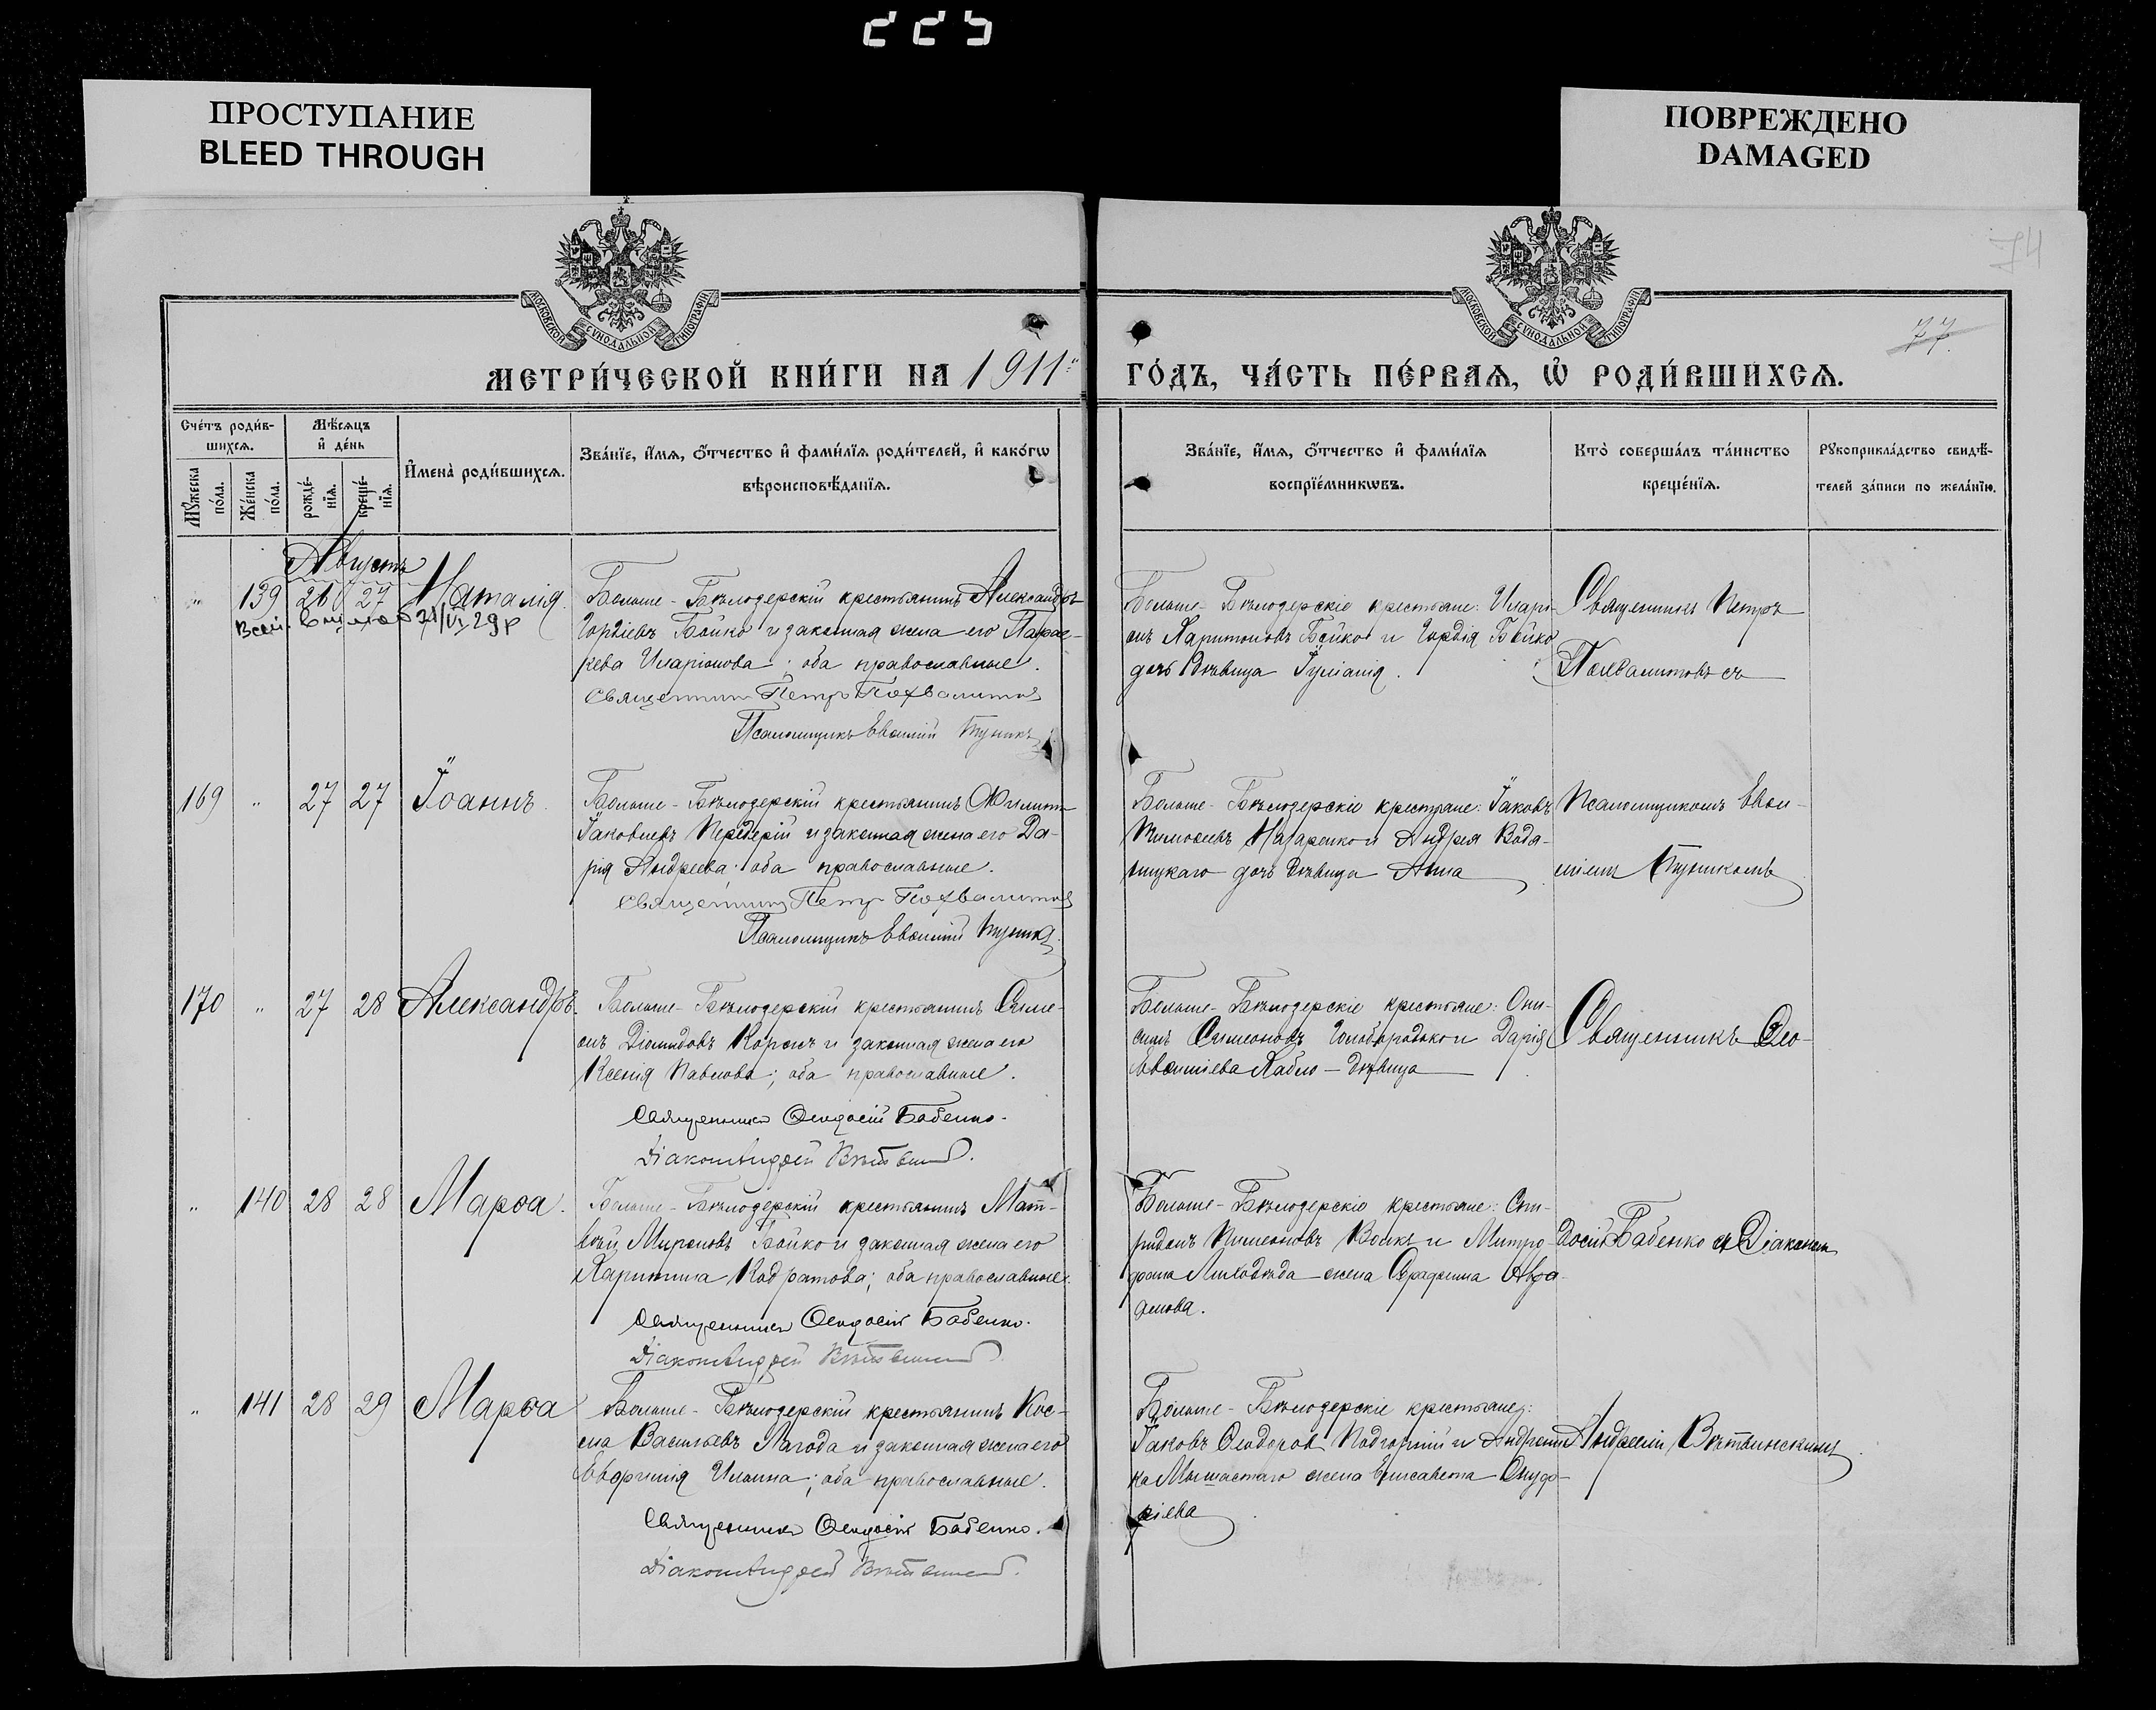 ПРОСТУПАНИЕ
BLEED THROUGH
ПОВРЕЖДЕНО
DAMAGED
74
77
МОСКОВСКОЙ СУНОДАЛЬНОЙ ТИПОГРАФІИ
МОСКОВСКОЙ СУНОДАЛЬНОЙ ТИПОГРАФІИ
МЕТРИ́ЧЕСКОЙ КНИ́ГИ НА 1911 ГО́ДЪ, ЧА́СТЬ ПЕ́РВАЯ, Ѡ РОДИ́ВШИХСЯ.
Сче́тъ роди́в-
шихся.
Мѣ́сяцъ
и де́нь
Му́жеска
по́ла.
Же́нска
по́ла.
рожде́-
нїя.
креще́-
нїя.
И҆мена̀ роди́вшихся.
Зва́нїе, и҆́мя, ѻ҆́тчество и҆ фами́лїя роди́телей, и҆ како́гѡ
вѣроисповѣ́данїя.
Зва́нїе, и҆́мя, ѻ҆́тчество и҆ фами́лїя
воспрїе́мникѡвъ.
Кто̀ соверша́лъ та́инство
креще́нїя.
Рꙋкоприкла́дство свидѣ́-
телей за́писи по жела́нїю.
Августъ
" 139 26 27 Наталія.
29 р
Больше-Бѣлозерскій крестьянинъ Александръ
Гордіевъ Бойко и законная жена его Парас-
кева Иларіонова; оба православные.
Священник Петръ Похвалитов
Псаломщикъ Евѳимій
Больше-Бѣлозерскіе крестьяне: Иларі-
онъ Харитоновъ Бойко и Гордія Бойко
дочь дѣвица Іуліанія.
Священникъ Петръ
Похвалитовъ съ
169 " 27 27 Іоаннъ.
Больше-Бѣлозерскій крестьянинъ Филиппъ
Іаковлевъ Передерій и законная жена его Да-
рія Андреева; оба православные.
Священник Петр Похвалитов
Псаломщикъ Евѳимій
Больше-Бѣлозерскіе крестьяне: Іаковъ
Тимоѳеевъ Назаренко и Андрея
дочь дѣвица Анна
Псаломщикомъ Евѳи-
міемъ
170 " 27 28 Александръ.
Больше-Бѣлозерскій крестьянинъ Симе-
онъ Діомидовъ Коржъ и законная жена его
Ксенія Павлова; оба православные.
Священникъ Ѳеодосій Бабенко.
Діаконъ Андрей
Больше-Бѣлозерскіе крестьяне: Они-
симъ Симеоновъ Голобородько и Дарія
Евѳиміева дѣвица
Священникъ Ѳео-
" 140 28 28 Марѳа.
Больше-Бѣлозерскій крестьянинъ Мат-
вѣй Мироновъ Бойко и законная жена его
Харитина Кодратова; оба православные.
Священникъ Ѳеодосій Бабенко.
Діаконъ Андрей
Больше-Бѣлозерскіе крестьяне: Спи-
ридонъ Пимоновъ Волкъ и Митро-
фана Лиходѣда жена
амова.
досій Бабенко съ Діакономъ
" 141 28 29 Марѳа
Больше-Бѣлозерскій крестьянинъ Кос-
ма Васильевъ Лагода и законная жена его
Евфимія Ильина; оба православные.
Священникъ Ѳеодосій Бабенко.
Діаконъ Андрей
Больше-Бѣлозерскіе крестьяне:
Іаковъ Ѳеодоровъ Подгорній и
жена Елисавета Онуф-
ріева
Андреемъ